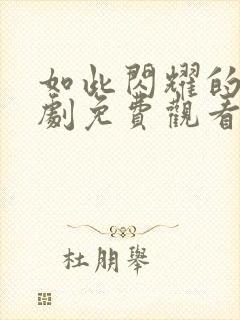 如此閃耀的
劇免費觀看
杜朋舉